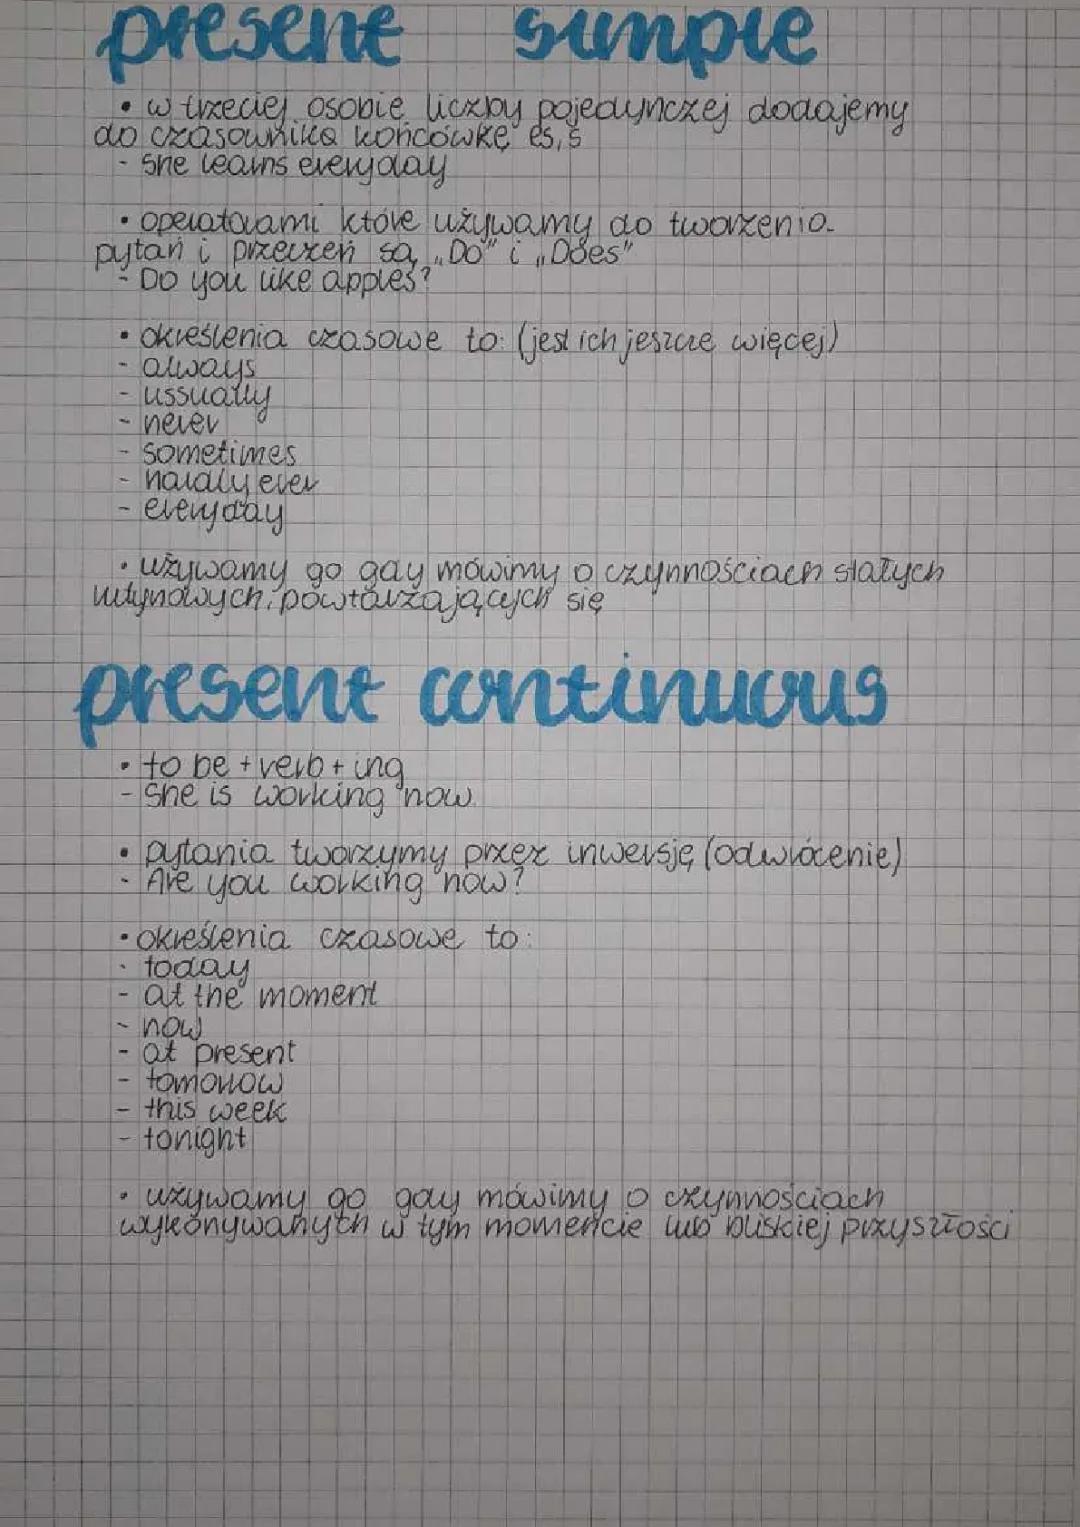 present simple
• w trzeciej osobie liczby pojedynczej dodajemy
do czasownika końcówkę es, s
- she learns everyday
• operatorami które używamy do tworzenia
pytań i przeczeń są „Do" i „Does"
- Do you like apples?
• określenia czasowe to: (jest ich jeszcze więcej)
- always
- ussually
- never
- sometimes
- hardly ever
- everyday
• używamy go gdy mówimy o czynnościach stałych
rutynowych, powtarzających się
present continuous
• to be + verb + ing
- she is working now.
• pytania tworzymy przez inwersję (odwrócenie)
- Are you working now?
• określenia czasowe to:
- today
- at the moment
- now
- at present
- tomorrow
- this week
- tonight
• używamy go gdy mówimy o czynnościach
wykonywanych w tym momencie lub bliskiej przyszłości